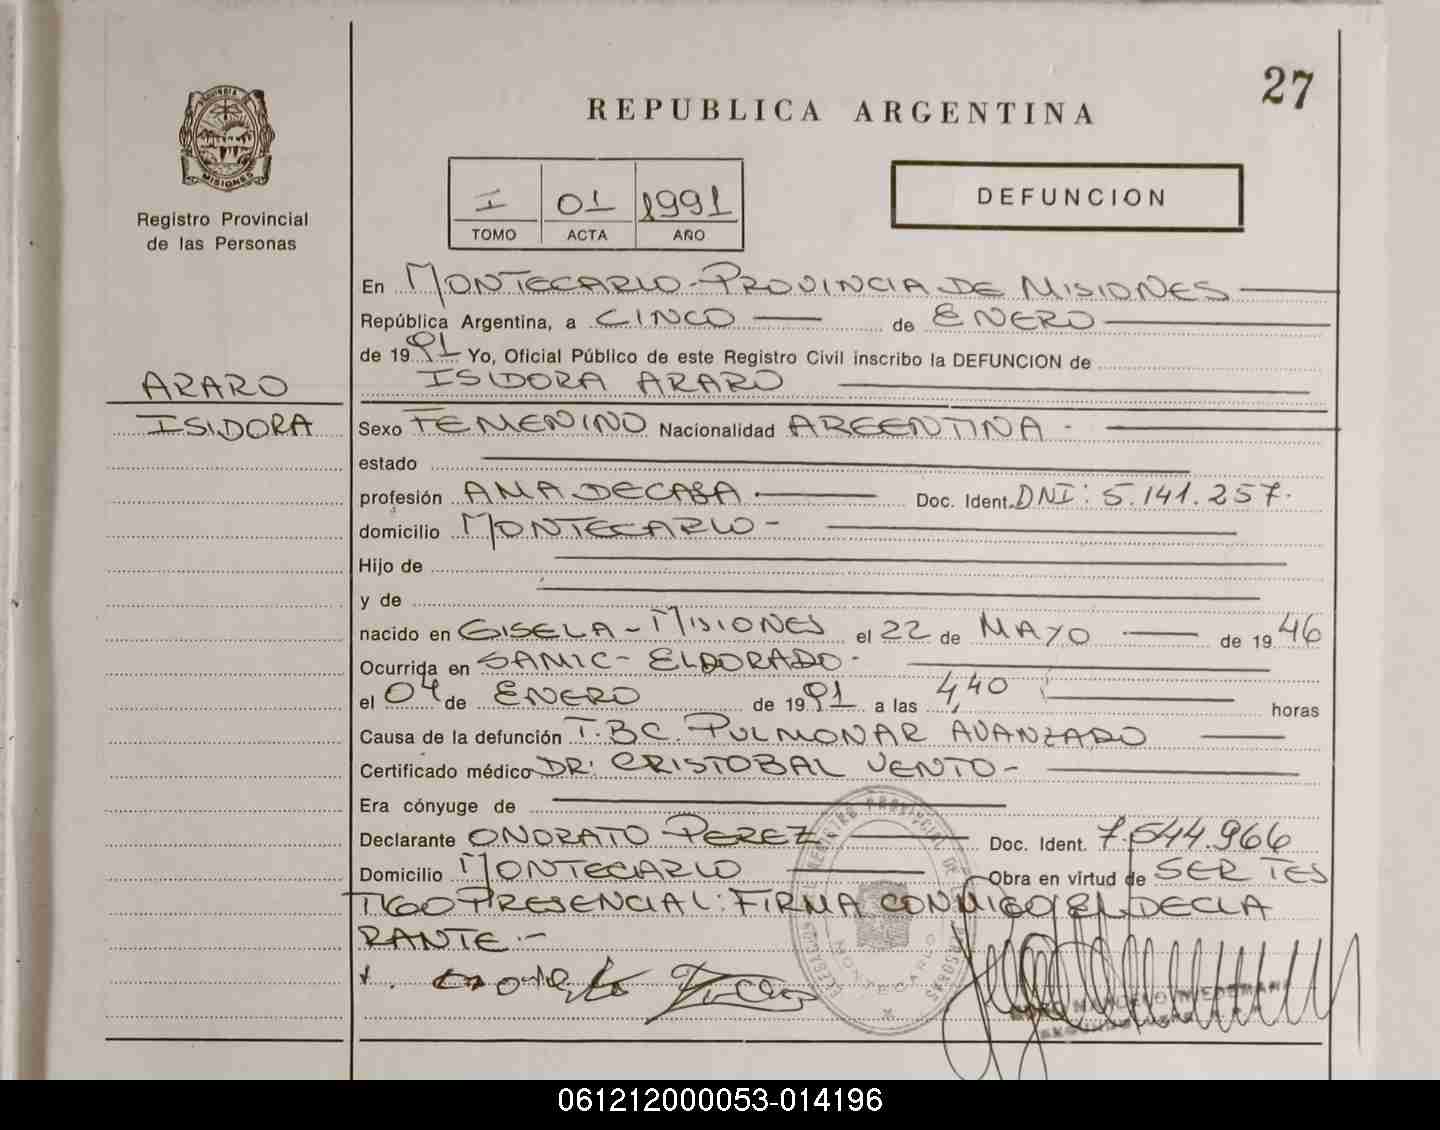 27
REPUBLICA ARGENTINA
PROVINCIA DE
MISIONES
Registro Provincial
de las Personas
I 01 1991
TOMO ACTA AÑO
DEFUNCION
En MONTECARLO - PROVINCIA DE MISIONES
República Argentina, a CINCO de ENERO
de 1991 Yo, Oficial Público de este Registro Civil inscribo la DEFUNCION de
ISIDORA ARARO
ARARO
ISIDORA
Sexo FEMENINO Nacionalidad ARGENTINA -
estado
profesión AMA DE CASA. Doc. Ident. DNI: 5.141.257.
domicilio MONTECARLO -
Hijo de
y de
nacido en GISELA - MISIONES el 22 de MAYO de 1946
Ocurrida en SAMIC - ELDORADO.
el 04 de ENERO de 1991 a las 4,40 horas
Causa de la defunción T.BC. PULMONAR AVANZADO
Certificado médico DR: CRISTOBAL VENTO -
Era cónyuge de
Declarante ONORATO PEREZ Doc. Ident. 7.544.966
Domicilio MONTECARLO Obra en virtud de SER TES
TIGO PRESENCIAL: FIRMA CONMIGO EL DECLA
RANTE.-
REGISTRO PROVINCIAL DE LAS PERSONAS
MONTECARLO
MARCELO WIEDEMANN
061212000053-014196